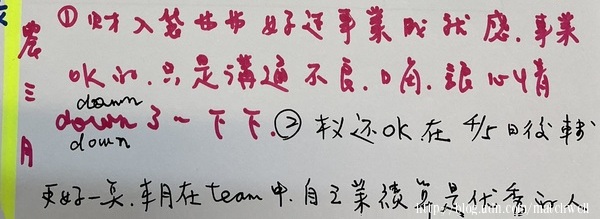 農三月
①財入袋 好運事業成就感.事業
OK的.只是溝通不良.口角.銀心情
down
down了一下下.②較还OK在4/5日後轉
down
更好一点.本月在team中.自己業績算是优秀的人
http://blog.udn.com/marciwell